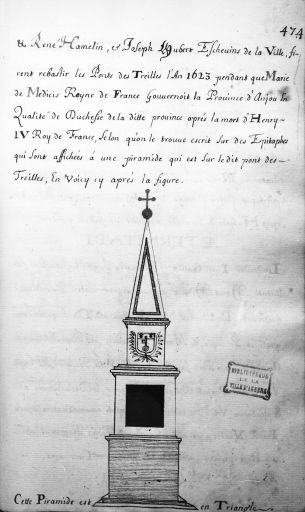 474
& René Hamelin, et Joseph Hubert Eschevins de la Ville, fi-
rent rebastir les Ponts des Treilles l'An 1623 pendant que Marie
de Medicis Royne de France Gouvernoit la Province d'Anjou En
Qualité de Duchesse de la ditte province aprés la mort d'Henry
IV Roy de France, selon qu'on le trouve escrit sur des Epitaphes
qui sont affichées à une piramide qui est sur le dit pont des
Treilles, En Voicy cy aprés la figure.
BIBLIOTHEQUE
DE LA
VILLE D'ANGERS
Cette Piramide est en Triangle